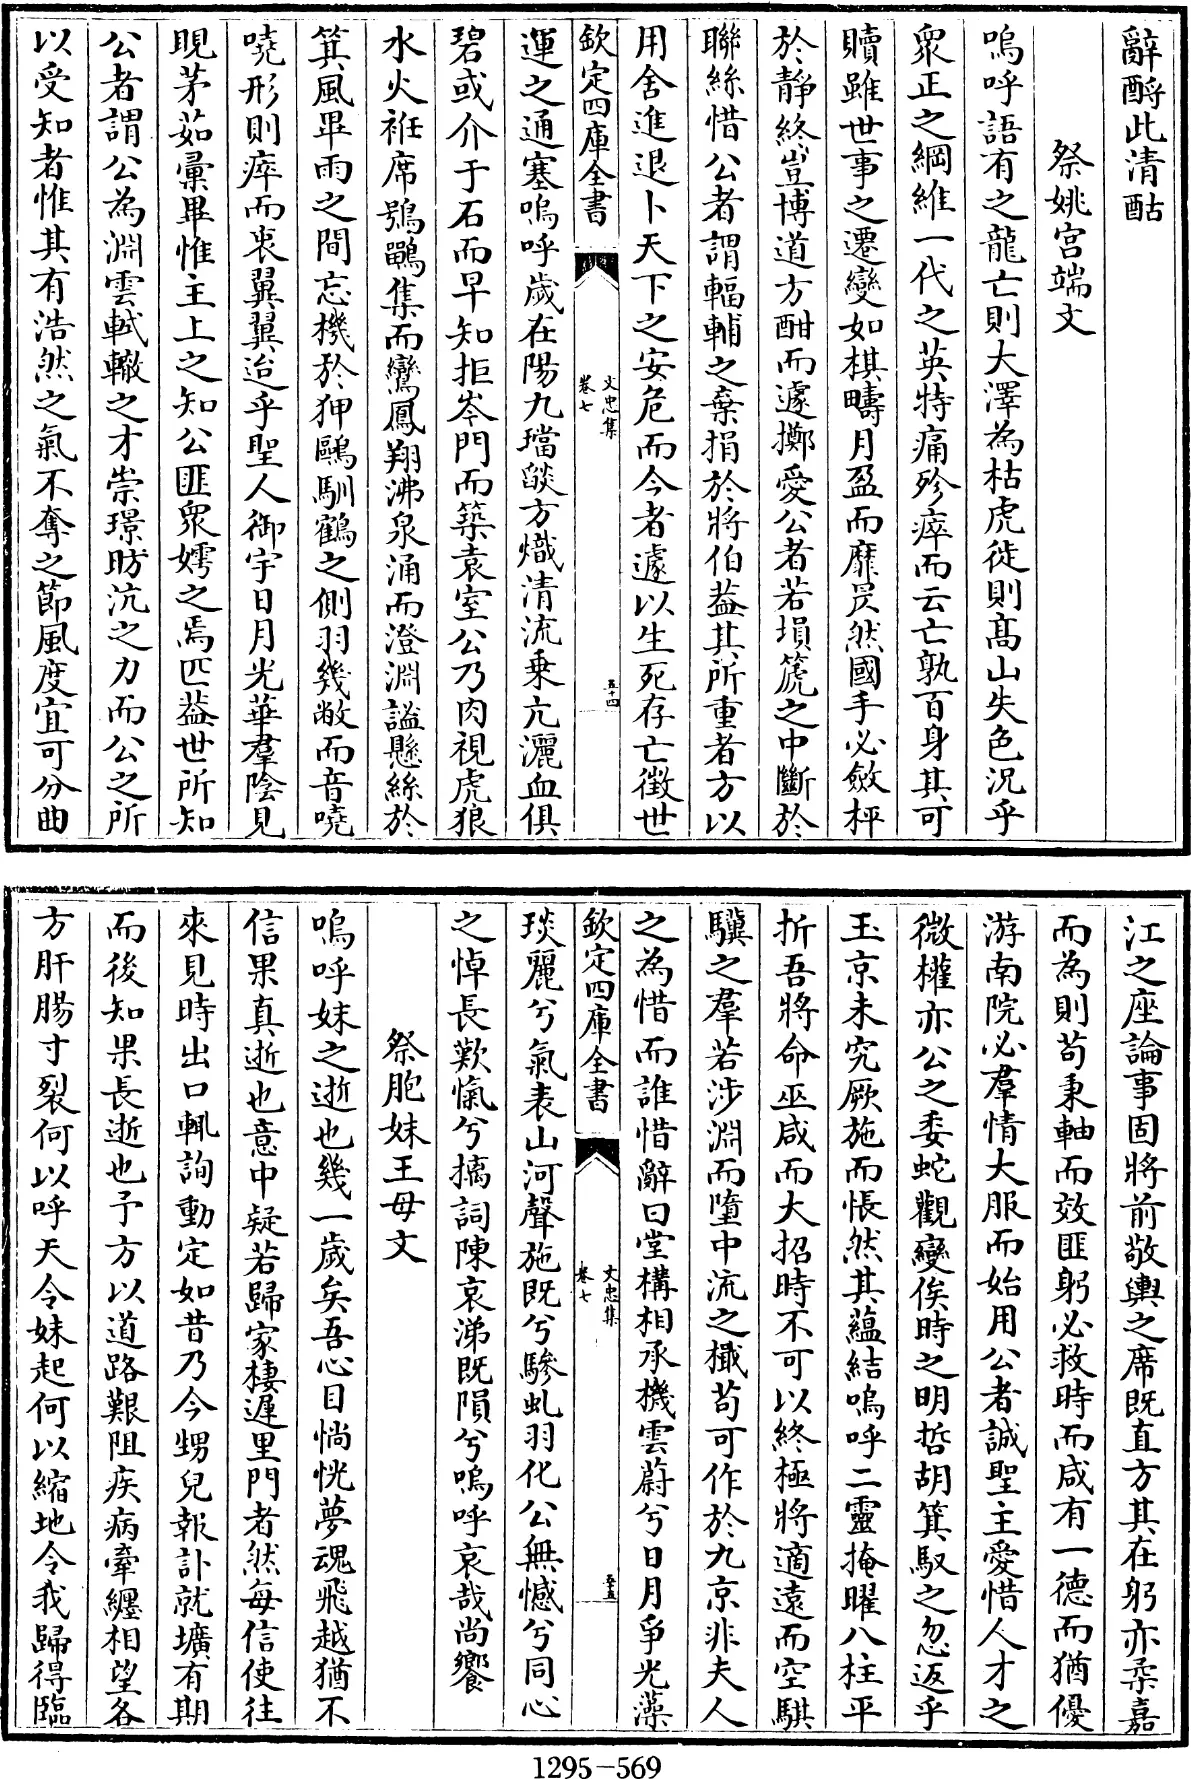 辭酹此清酤
祭姚宫端文
嗚呼語有之龍亡則大澤為枯虎徙則髙山失色況乎
衆正之綱維一代之英特痛殄瘁而云亡孰百身其可
贖雖世事之遷變如棋疇月盈而靡昃然國手必斂枰
於静終豈博道方酣而遽擲愛公者若塤箎之中斷於
聯絲惜公者謂輻輔之棄捐於將伯葢其所重者方以
用舍進退卜天下之安危而今者遽以生死存亡徴世
欽定四庫全書
文忠集
卷七
五十四
運之通塞嗚呼歲在陽九璫燄方熾清流乗亢灑血俱
碧或介于石而早知拒岑門而築袁室公乃肉視虎狼
水火袵席鴞鸓集而鸞鳳翔沸泉涌而澄淵謐懸絲於
箕風畢雨之間忘機於狎鷗馴鶴之側羽幾敝而音嘵
嘵形則瘁而衷翼翼迨乎聖人御宇日月光華羣陰見
晛茅茹彙畢惟主上之知公匪衆嫮之焉匹葢世所知
公者謂公為淵雲軾轍之才崇璟昉沆之力而公之所
以受知者惟其有浩然之氣不奪之節風度宜可分曲
江之座論事固將前敬輿之席既直方其在躬亦柔嘉
而為則苟秉軸而效匪躬必救時而咸有一德而猶優
游南院必羣情大服而始用公者誠聖主愛惜人才之
微權亦公之委蛇觀變俟時之明哲胡箕馭之忽返乎
玉京未究厥施而悵然其藴結嗚呼二靈掩曜八柱平
折吾將命巫咸而大招時不可以終極將適遠而空騏
驥之羣若涉淵而墮中流之檝茍可作於九京非夫人
之為惜而誰惜辭曰堂構相承機雲蔚兮日月爭光藻
欽定四庫全書
文忠集
卷七
五十五
琰麗兮氣表山河聲施既兮驂虬羽化公無憾兮同心
之悼長歎愾兮摛詞陳哀涕既隕兮嗚呼哀哉尚饗
祭胞妹王母文
嗚呼妹之逝也幾一歲矣吾心目惝恍夢魂飛越猶不
信果真逝也意中疑若歸家棲遲里門者然每信使往
來見時出口輒詢動定如昔乃今甥兒報訃就壙有期
而後知果長逝也予方以道路艱阻疾病牽纏相望各
方肝腸寸裂何以呼天令妹起何以縮地令我歸得臨
1295-569